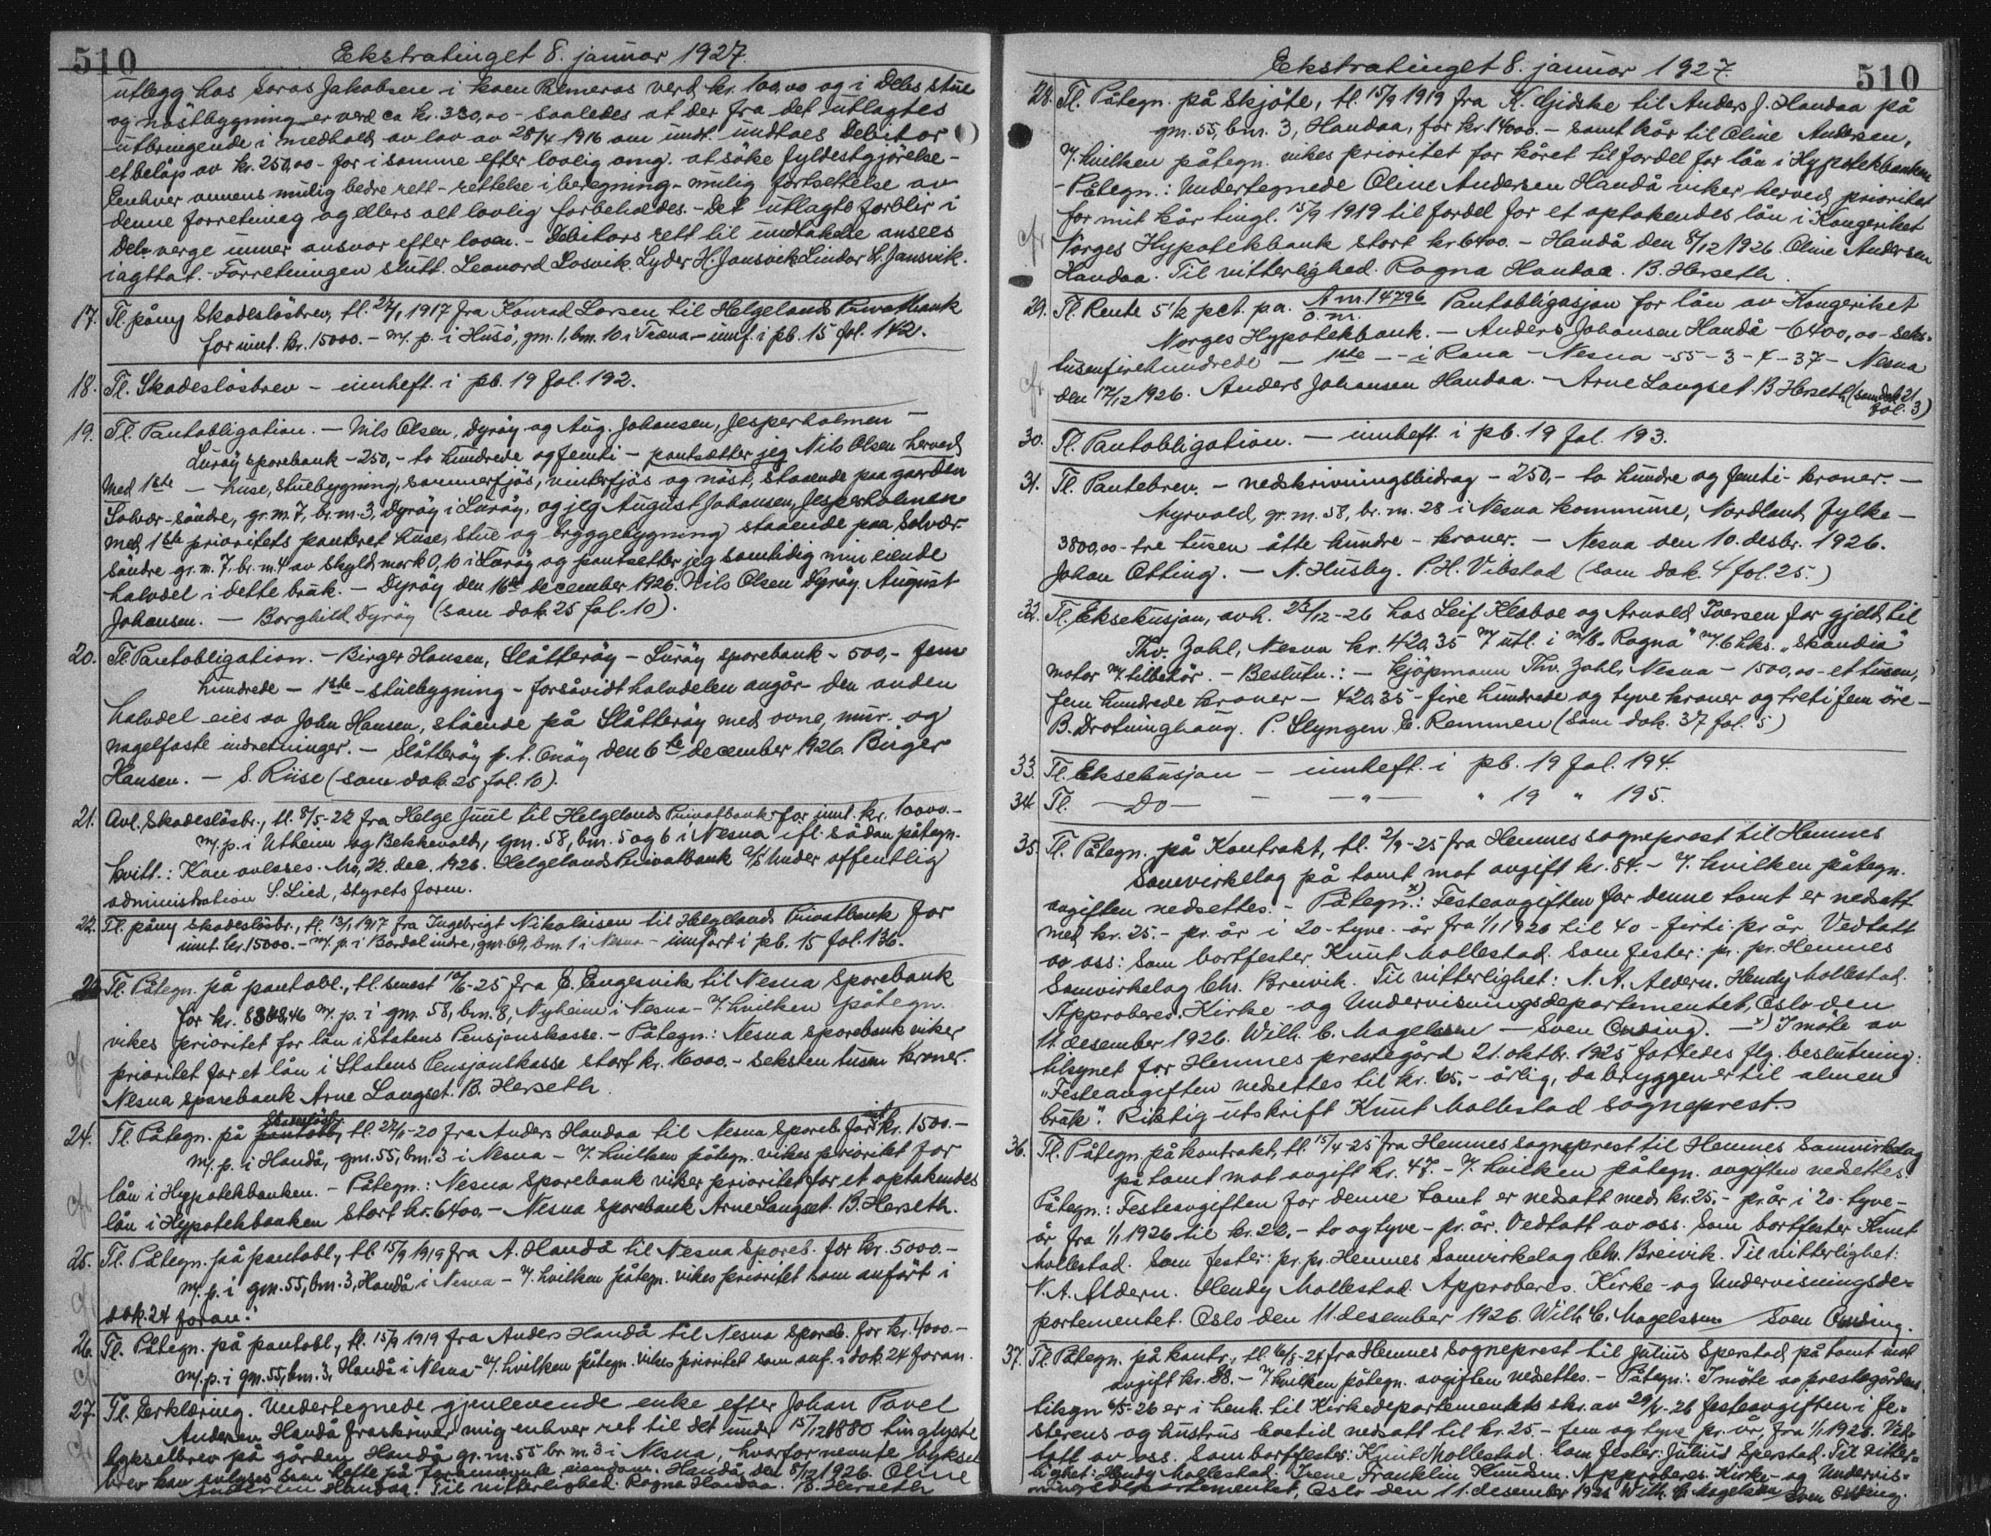 510
Ekstratinget 8. januar 1927.
utlegg hos Jakobsen i verd kr. 100,00 og i Debs. stue
og nöstbygning er verd ca kr. 330,00 - saaledes at der fra det utlagtes
utbringende i medhold av lov av 28/4 1916 om undt. undtaes Debitor
et belöp av kr. 250,00 for i samme efter lovlig omg. at söke fyldestgjörelse -
Enhver annens mulig bedre rett - rettelse i beregning - mulig fortsettelse av
denne forretning og ellers alt lovlig forbeholdes. - Det utlagte forblir i
Debs verge under ansvar efter loven. - Debitors rett til undtakelse ansees
iagttat. Forretningen slutt. Leonard Losvik. Lyder H. Jansvik Lindor L. Jansvik.
17. Tl. påny Skadeslösbrev, tl. 27/1 1917 fra Konrad Larsen til Helgelands Privatbank
for innt. kr. 15000. - m/. p. i Husö, gm. 1, bm. 10 i Træna - innf. i pb. 15 fol. 142.
18. Tl. Skadeslösbrev - innheft. i pb. 19 fol. 192.
19. Tl. Pantobligation. - Nils Olsen, Dyröy og Aug. Johansen, Jesperholmen -
Luröy sparebank - 250,- to hundrede og femti - pantsætter jeg Nils Olsen herved
Med 1ste - huse, stuebygning, sommerfjös, vinterfjös og nöst, staaende paa gaarden
Solvær-söndre, gr. m. 7, br. m. 3, Dyröy i Luröy, og jeg August Johansen, Jesperholmen
med 1ste prioritets panteret huse, stue og bryggebygning staaende paa Solvær
söndre gr. m. 7. br. m. 4 av skyld mark 0,10 i Luröy og pantsetter jeg samtidig min eiende
halvdel i dette bruk. - Dyröy den 16de december 1926. Nils Olsen Dyröy. August
Johansen. - Borghild Dyröy (som dok 25 fol. 10).
20. Tl. Pantobligation. - Birger Hansen, Slåtteröy - Luröy sparebank - 500,- fem
hundrede - 1ste - stuebygning - forsåvidt halvdelen angår - den anden
halvdel eies av John Hansen, stående på Slåtteröy med ovne, mur- og
nagelfaste indretninger. - Slåtteröy p. t. Onöy den 6te december 1926. Birger
Hansen. - S. Riise (som dok. 25 fol. 10).
21. Avl. Skadeslösbr., tl. 8/5-22 fra Helge Juul til Helgelands Privatbank for innt. kr. 10000.-
m/. p. i Utheim og Bekkevold, gm. 58, bm. 5 og 6 i Nesna ifl. sådan påtegn.
kvitt.: Kan avlæses. Mo, 22. dec. 1926. Helgelands Privatbank A/S Under offentlig
administration S. Lied, Styrets form.
22. Tl. påny Skadeslösbr., tl. 13/1 1917 fra Ingebrigt Nikolaisen til Helgelands Privatbank for
innt. kr. 15000. - m/. p. i Bardal indre, gm. 69, bm. 1 i Nesna - innfört i pb. 15 fol. 136.
23. Tl. Påtegn. på pantobl., tl. senest 10/6-25 fra E. Engesvik til Nesna Sparebank
for kr. 8348,46 m/. p. i gm. 58, bm. 8, Nyheim i Nesna - v/. hvilken påtegn.
vikes prioritet for lån i Statens Pensjonskasse. - Påtegn.: Nesna sparebank viker
prioritet for et lån i Statens Pensjonskasse stort kr. 16000. - seksten tusen kroner.
Nesna sparebank Arne Langset. B. Herseth.
24. Tl. Påtegn. på Skadeslösbr. tl. 27/1-20 fra Anders Handaa til Nesna Spareb. for innt. kr. 1500.-
m/. p. i Handå, gm. 55, bm. 3 i Nesna - v/. hvilken påtegn. vikes prioritet for
lån i Hypotekbanken. - Påtegn.: Nesna Sparebank viker prioritet for et optakendes
lån i Hypotekbanken stort kr. 6400. - Nesna sparebank Arne Langset. B. Herseth.
25. Tl. Påtegn. på pantobl., tl. 15/9 1919 fra A. Handå til Nesna Spareb. for kr. 5000.-
m/. p. i gm. 55, bm. 3, Handå i Nesna - v/. hvilken påtegn. vikes prioritet som anfört i
dok. 24 foran.
26. Tl. Påtegn. på pantobl., tl. 15/9 1919 fra Anders Handå til Nesna Spareb. for kr. 4000.-
m/. p. i gm. 55, bm. 3, Handå i Nesna - v/. hvilken påtegn. vikes prioritet som anf. i dok. 24 foran.
27. Tl. Erklæring. Undertegnede gjenlevende enke efter Johan Pavel
Andersen Handå fraskriver mig enhver ret til det under 15/12 1880 tinglyste
bykselbrev på gården Handå gr. m. 55 br. m. 3 i Nesna, hvorfor nevnte byksel
brev kan avlyses som hefte på fornævnte eiendom. Handå, den 8/12 1926. Oline
Andersen Handaa. Til vitterlighed. Ragna Handaa. B. Herseth
510
Ekstratinget 8. januar 1927.
28. Tl. Påtegn. på Skjöte, tl. 15/9 1919 fra K. Gjidske til Anders J. Handaa på
gm. 55, bm. 3, Handaa, for kr. 14000. - samt kår til Oline Andersen,
v/. hvilken påtegn. vikes prioritet for kåret til fordel for lån i Hypotekbanken
- Påtegn.: Undertegnede Oline Andersen Handå viker herved prioritet
for mit kår tingl. 15/9 1919 til fordel for et optakendes lån i Kongeriket
Norges Hypotekbank stort kr 6400. - Handå den 8/12 1926. Oline Andersen
Handaa. Til vitterlighed. Ragna Handaa. B. Herseth
29. Tl. Rente 5 1/2 pct. p. a. A nr. 14796 / O. nr. Pantobligasjon for lån av Kongeriket
Norges Hypotekbank. - Anders Johansen Handå - 6400,00 - seks-
tusenfirehundrede - 1ste - - i Rana - Nesna - 55 - 3 - 4 - 37 - Nesna
den 17/12 1926. Anders Johansen Handaa. - Arne Langset. B Herseth (som dok 21
fol. 3)
30. Tl. Pantobligation. - innheft. i pb. 19 fol. 193.
31. Tl. Pantebrev. - nedskrivningsbidrag - 250,- to hundre og femti - kroner. -
Myrvold, gr. m. 58, br. m. 28 i Nesna kommune, Nordland fylke -
3800,00 - tre tusen åtte hundre - kroner. - Nesna den 10. desbr. 1926.
Johan Otting. - N. Husby. P. H. Vibstad (som dok. 4 fol. 25.)
32. Tl. Eksekusjon, avh. 23/12-26 hos Leif Klæboe og Arnold Iversen for gjeld til
Thv. Zahl, Nesna kr. 420,35 m/ utl. i m/b. "Ragna" m/. 6 hks. "Skandia"
motor m/ tilbehör. - Beslutn.: - Kjöpmann Thv. Zahl, Nesna - 1500,00 - et tusen,
fem hundrede kroner - 420,35 - fire hundrede og tyve kroner og treti fem öre -
B. Drotninghaug. P. Slyngen E. Remmen (som dok. 37 fol. 5)
33. Tl. Eksekusjon - innheft. i pb. 19 fol. 194.
34 Tl. - Do - - - " - " 19 " 195.
35. Tl. Påtegn. på Kontrakt, tl. 2/9-25 fra Hemnes sogneprest til Hemnes
Samvirkelag på tomt mot avgift kr. 84. - v/. hvilken påtegn.
avgiften nedsettes. - Påtegn. x): Festeavgiften for denne tomt er nedsatt
med kr. 25. - pr. år i 20 - tyve - år fra 1/1 1926 til 40 - firti - pr år. Vedtatt
av oss: Som bortfester Knut Mollestad. Som fester: pr. pr. Hemnes
Samvirkelag Chr. Breivik. Til vitterlighet: N. A. Aldern. Hendy Mollestad.
Approberes. Kirke - og Undervisningsdepartementet, Oslo den
11 desember 1926. Wilh. C. Magelssen - Sven Onding. - x) I möte av
tilsynet for Hemnes prestegård 21. oktbr. 1925 fattedes flg. beslutning:
"Festeavgiften nedsettes til kr. 65. - årlig, da bryggen er til almen
bruk". Riktig utskrift Knut Mollestad sogneprest.
36. Tl. Påtegn. på kontrakt, tl. 15/4-25 fra Hemnes sogneprest til Hemnes Samvirkelag
på tomt mot avgift kr. 47. - v/. hvilken påtegn. avgiften nedsettes.
Påtegn.: Festeavgiften for denne tomt er nedsatt med kr. 25. - pr. år i 20 - tyve -
år fra 1/1 1926 til kr. 22. - to og tyve - pr. år. Vedtatt av oss. Som bortfester Knut
Mollestad. Som fester: pr. pr. Hemnes Samvirkelag Chr. Breivik. Til vitterlighet:
N. A. Aldern. Hendy Mollestad. Approberes. Kirke - og Undervisningsde-
partementet. Oslo den 11. desember 1926. Wilh. C. Magelssen Sven Onding.
37. Tl. Påtegn. på kontr., tl. 6/5-24 fra Hemnes Sogneprest til Julius Sperstad på tomt mot
avgift kr. 38. - v/ hvilken påtegn. avgiften nedsettes. - Påtegn.: I möte av prestegårdens
tilsyn 6/5-26 er i henh. til Kirkedepartementets skr. av 29/1-26 festeavgiften i fe-
sterens og hustrus levetid nedsatt til kr. 25. - fem og tyve pr. år, fra 1/1 1926. Ved-
tatt av oss. Som bortfester: Knut Mollestad. Som fester: Julius Sperstad. Til vitter-
lighet: Hendy Mollestad. Irene Franklin Knudsen. Approberes. Kirke - og Undervis-
ningsdepartementet, Oslo den 11. desember 1926 Wilh. C. Magelssen Sven Onding.